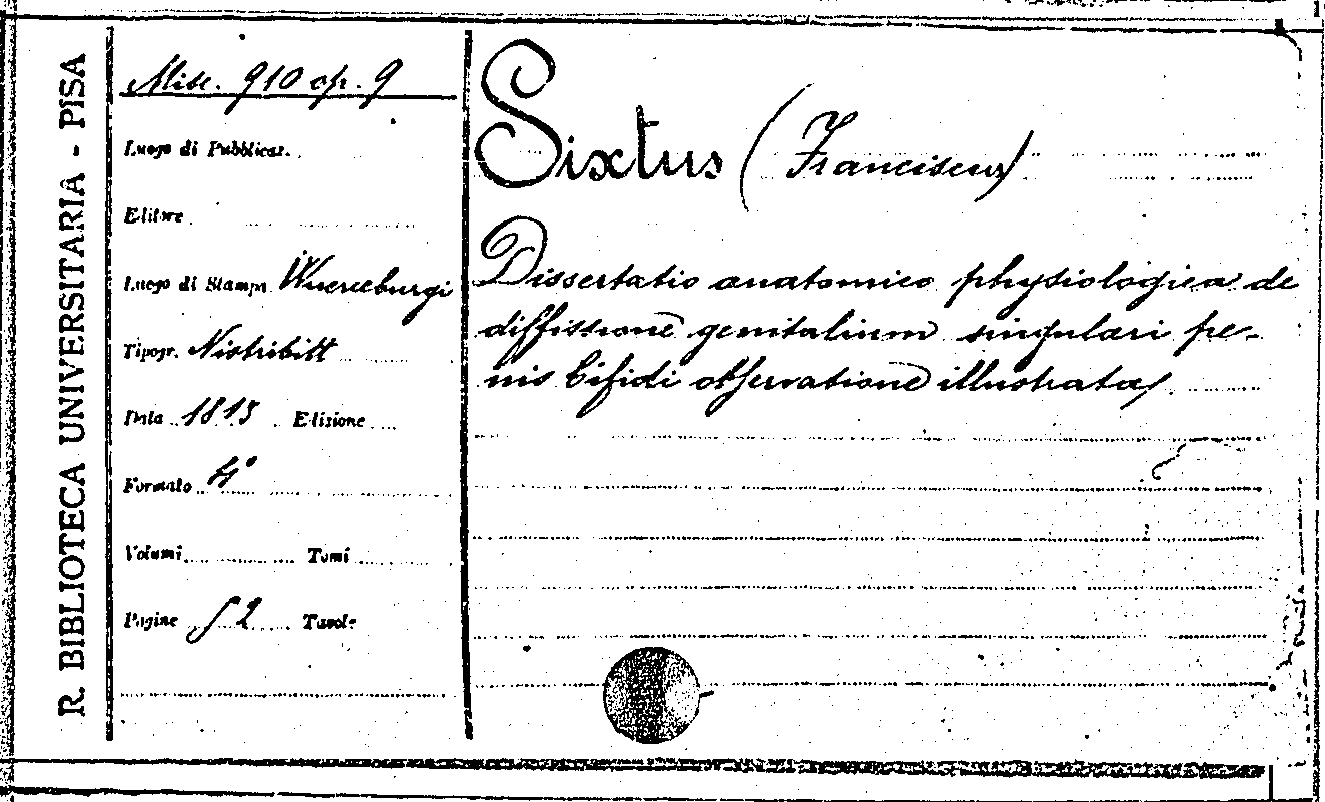 R. BIBLIOTECA UNIVERSITARIA - PISA
Misc. 910 op. 9
Luogo di Pubblicaz.
Editore
Luogo di Stampa Wuerceburgi
Tipogr. Nistribitt
Data 1813 Edizione
Formato 4°
Volumi Tomi
Pagine 52 Tavole
Sixtus (Franciscus)
Dissertatio anatomico physiologica de
diffissione genitalium singulari pe-
nis bifidi observatione illustrata